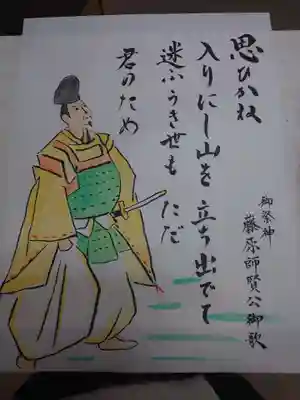 思ひかね
入りにし山を立ち出でて
迷ふうき世も ただ
君のため
御祭神
藤原師賢公御歌